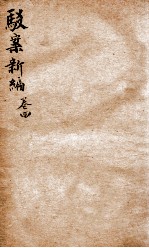 駁案新編 卷四